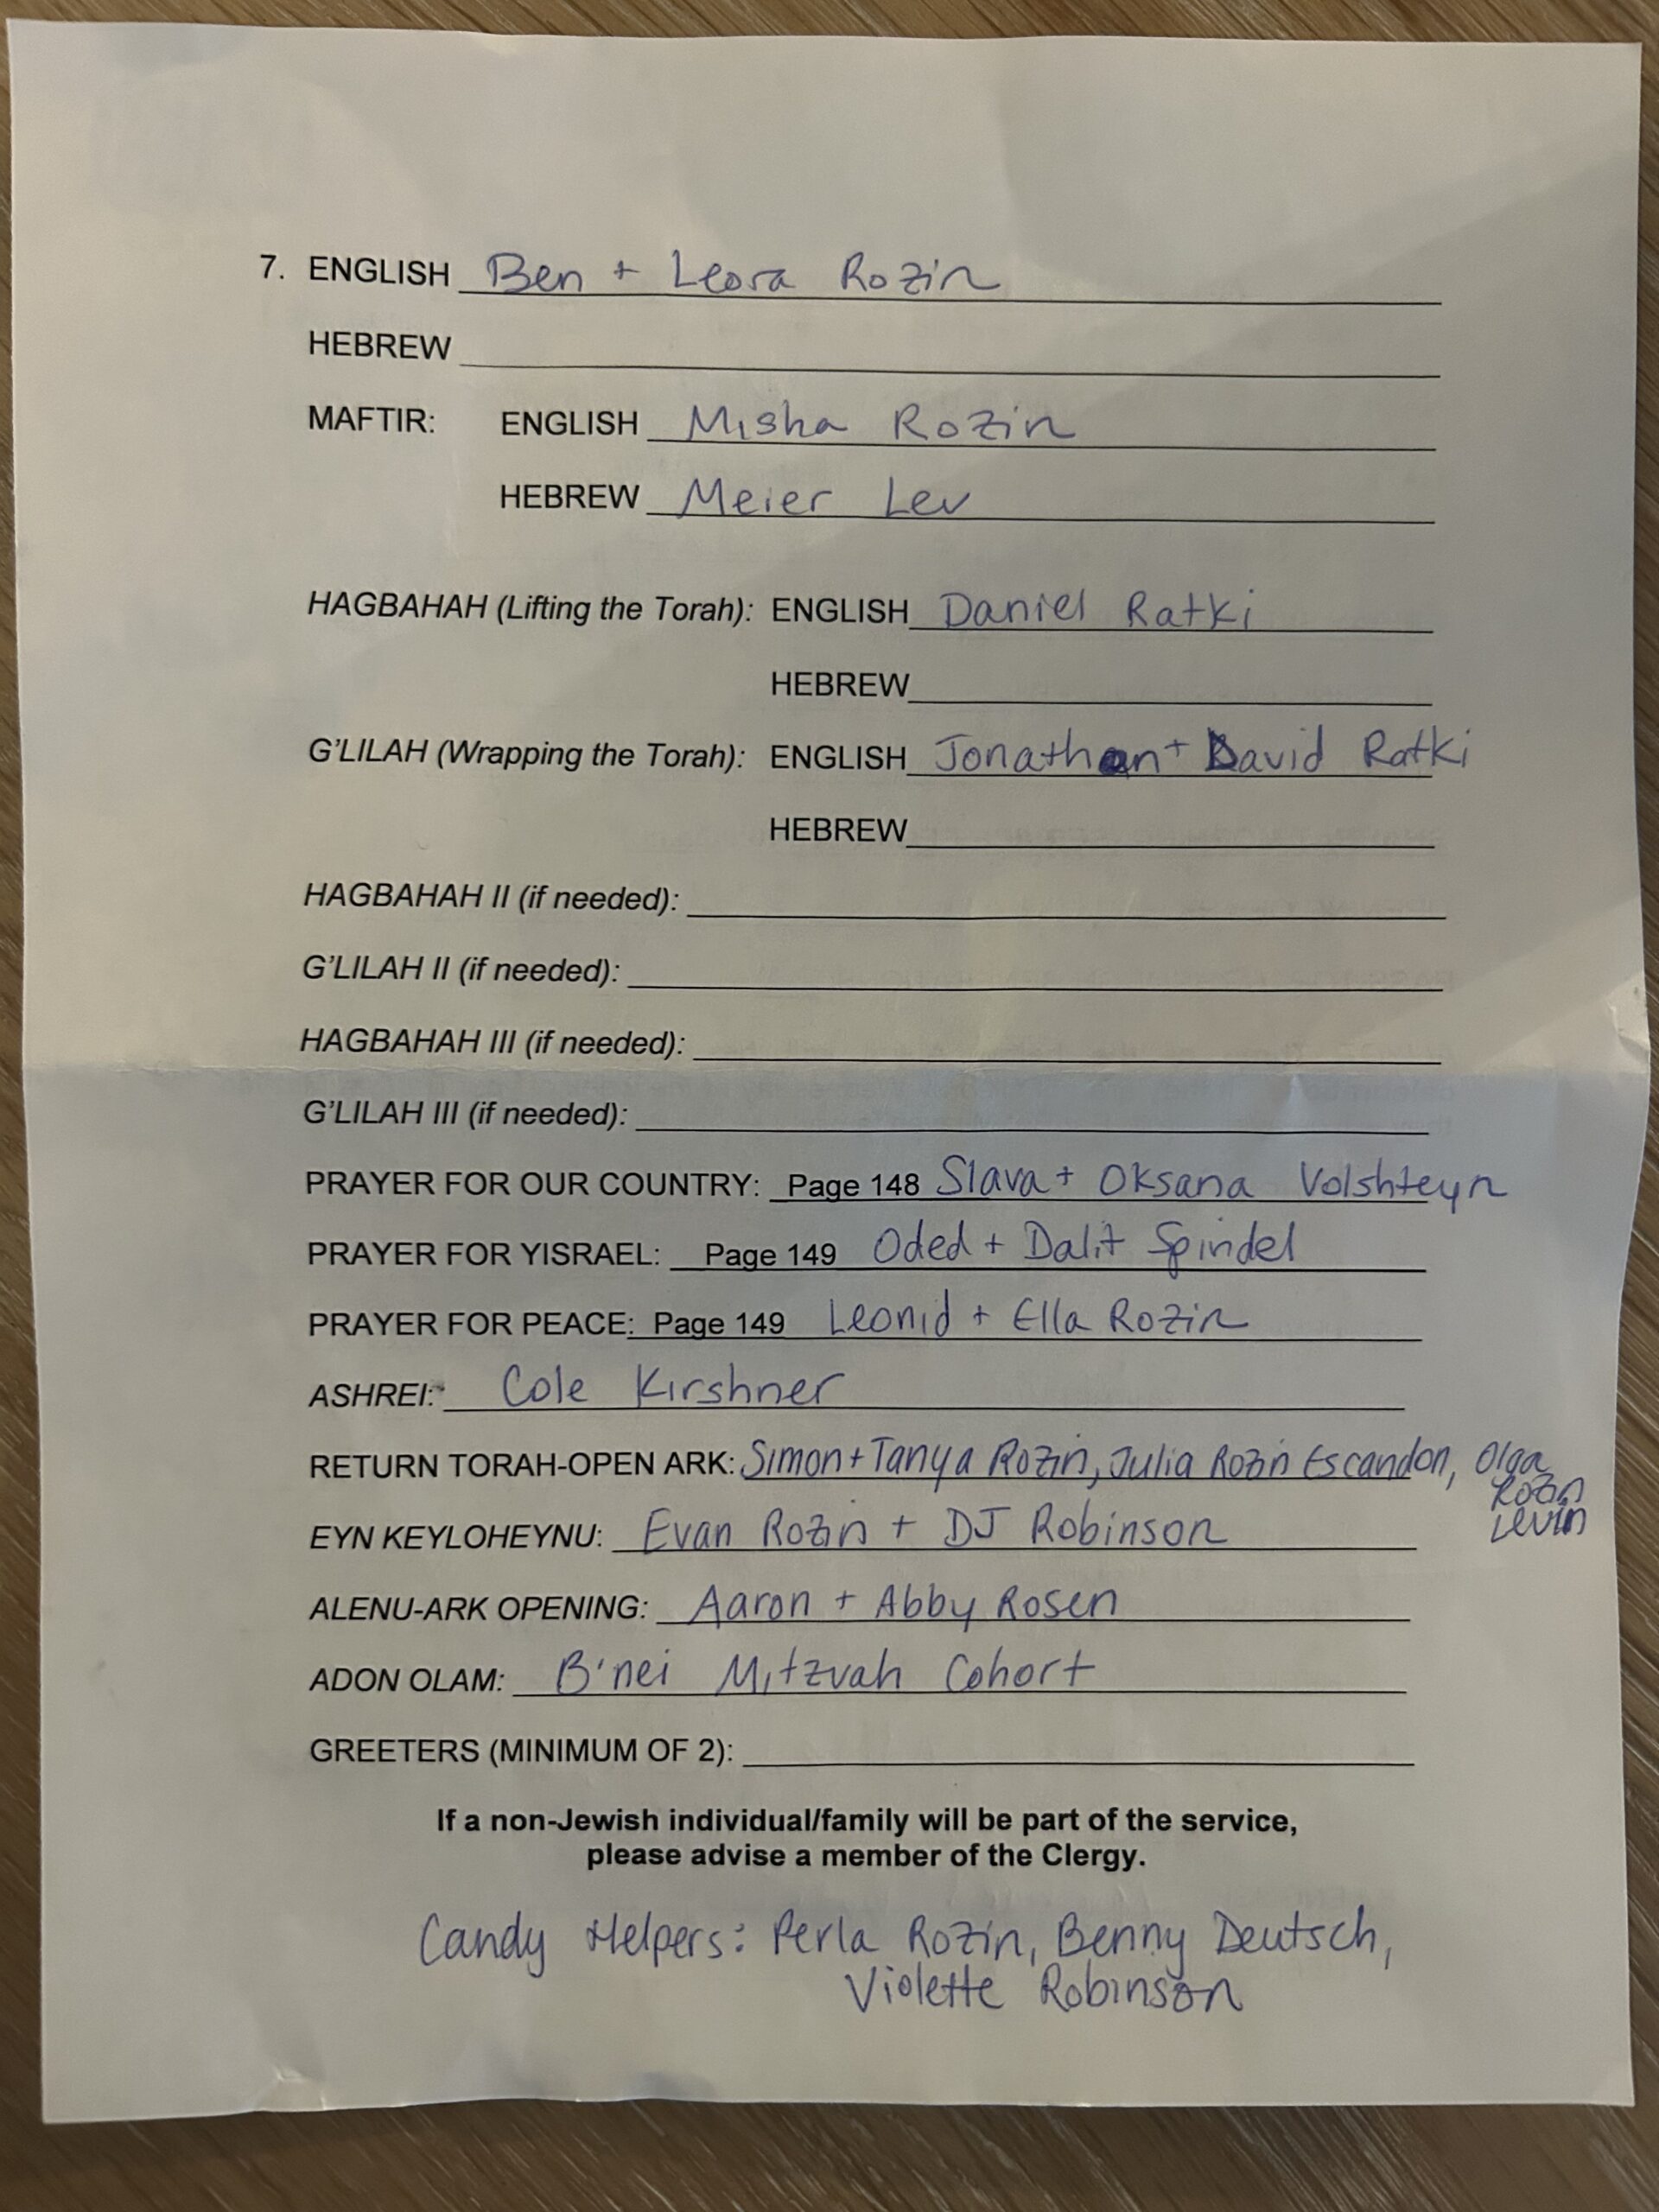 7. ENGLISH Ben + Leora Rozin
HEBREW
MAFTIR: ENGLISH Misha Rozin
HEBREW Meier Lev
HAGBAHAH (Lifting the Torah): ENGLISH Daniel Ratki
HEBREW
G'LILAH (Wrapping the Torah): ENGLISH Jonathan + David Ratki
HEBREW
HAGBAHAH II (if needed):
G'LILAH II (if needed):
HAGBAHAH III (if needed):
G'LILAH III (if needed):
PRAYER FOR OUR COUNTRY: Page 148 Slava + Oksana Volshteyn
PRAYER FOR YISRAEL: Page 149 Oded + Dalit Spindel
PRAYER FOR PEACE: Page 149 Leonid + Ella Rozin
ASHREI: Cole Kirshner
RETURN TORAH-OPEN ARK: Simon + Tanya Rozin, Julia Rozin Escandon, Olga
Rozin
Levin
EYN KEYLOHEYNU: Evan Rozin + DJ Robinson
ALENU-ARK OPENING: Aaron + Abby Rosen
ADON OLAM: B'nei Mitzvah Cohort
GREETERS (MINIMUM OF 2):
If a non-Jewish individual/family will be part of the service,
please advise a member of the Clergy.
Candy Helpers: Perla Rozin, Benny Deutsch,
Violette Robinson